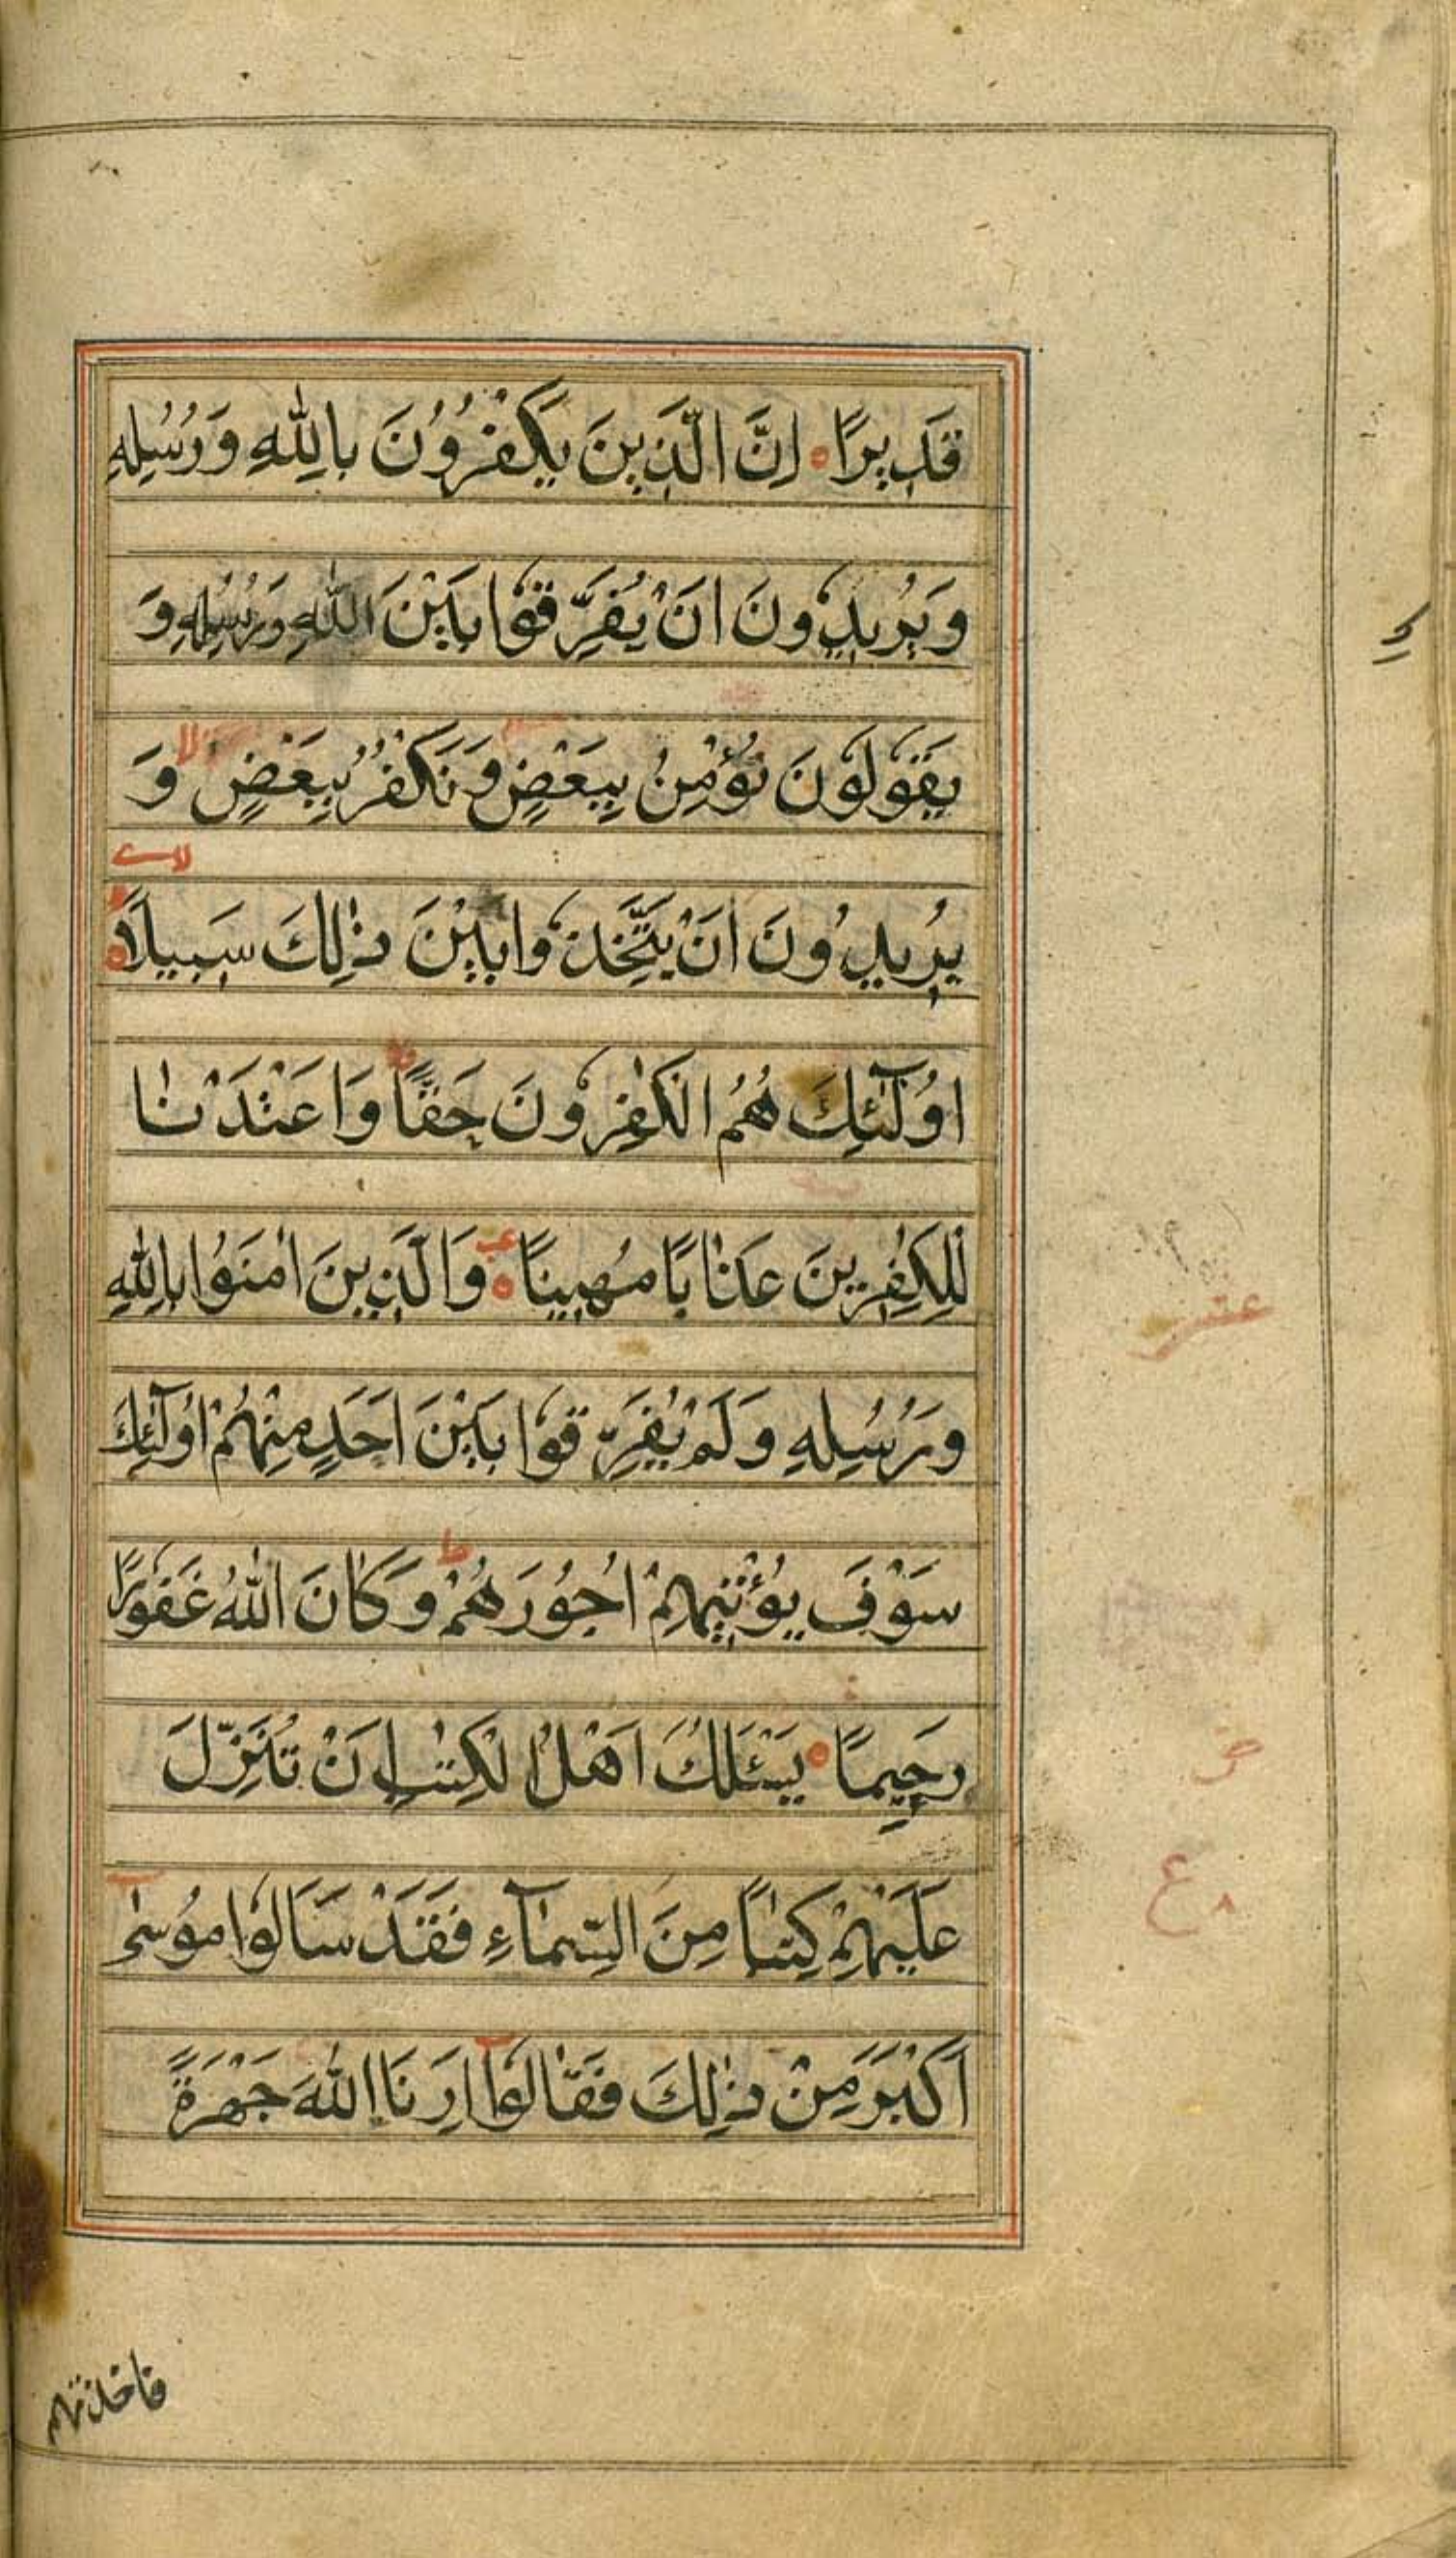 قَدِيرًا ۝ اِنَّ الَّذِينَ يَكْفُرُوْنَ بِاللّٰهِ وَرُسُلِهٖ
وَيُرِيدُوْنَ اَنْ يُفَرِّقُوْا بَيْنَ اللّٰهِ وَرُسُلِهٖ وَ
يَقُوْلُوْنَ نُؤْمِنُ بِبَعْضٍ وَنَكْفُرُ بِبَعْضٍ لا وَ
يُرِيدُوْنَ اَنْ يَتَّخِذُوْا بَيْنَ ذٰلِكَ سَبِيلًا ۝ لا
اُولٰٓئِكَ هُمُ الْكٰفِرُوْنَ حَقًّا وَاَعْتَدْنَا
لِلْكٰفِرِينَ عَذَابًا مُهِينًا ۝ وَالَّذِينَ اٰمَنُوْا بِاللّٰهِ
وَرُسُلِهٖ وَلَمْ يُفَرِّقُوْا بَيْنَ اَحَدٍ مِنْهُمْ اُولٰٓئِكَ
سَوْفَ يُؤْتِيهِمْ اُجُوْرَهُمْ ط وَكَانَ اللّٰهُ غَفُوْرًا
رَحِيمًا ۝ يَسْئَلُكَ اَهْلُ الْكِتٰبِ اَنْ تُنَزِّلَ
عَلَيْهِمْ كِتٰبًا مِنَ السَّمَآءِ فَقَدْ سَاَلُوْا مُوْسٰى
اَكْبَرَ مِنْ ذٰلِكَ فَقَالُوْٓا اَرِنَا اللّٰهَ جَهْرَةً
عشر
ع
فاخذتهم